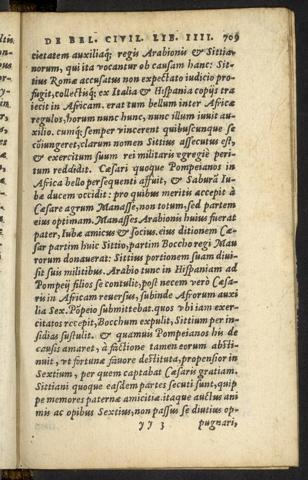 DE BEL. CIVIL. LIB. IIII. 709
cietatem auxiliaq́; regis Arabionis & Sittia-
norum, qui ita vocantur ob causam hanc: Sit-
tius Romæ accusatus non expectato iudicio pro-
fugit, collectisq́; ex Italia & Hispania copijs tra
iecit in Africam. erat tum bellum inter Africæ
regulos, horum nunc hunc, nunc illum iuuit au-
xilio. cumq́; semper vincerent quibuscunque se
cōiungeret, clarum nomen Sittius assecutus est,
& exercitum suum rei militaris egregiè peri-
tum reddidit. Cæsari quoque Pompeianos in
Africa bello persequenti affuit, & Saburā Iu-
bæ ducem occidit: pro quibus meritis accepit à
Cæsare agrum Manassæ, non totum, sed partem
eius optimam. Manasses Arabionis huius fuerat
pater, Iubæ amicus & socius. eius ditionem Cæ-
sar partim huic Sittio, partim Boccho regi Mau
rorum donauerat: Sittius portionem suam diui-
sit suis militibus. Arabio tunc in Hispaniam ad
Pompeij filios se contulit. post necem verò Cæsa-
ris in Africam reuersus, subinde Afrorum auxi
lia Sex. Pōpeio submittebat. quos vbi iam exer-
citatos recepit, Bocchum expulit, Sittium per in-
sidias sustulit. & quamuis Pompeianos his de
causis amaret, à factione tamen eorum absti-
nuit, vt fortunæ fauore destituta, propensior in
Sextium, per quem captabat Cæsaris gratiam.
Sittiani quoque easdem partes secuti sunt, quip
pe memores paternæ amicitiæ. itaque auctus ani
mis ac opibus Sextius, non passus se diutius op-
yy 3 pugnari,